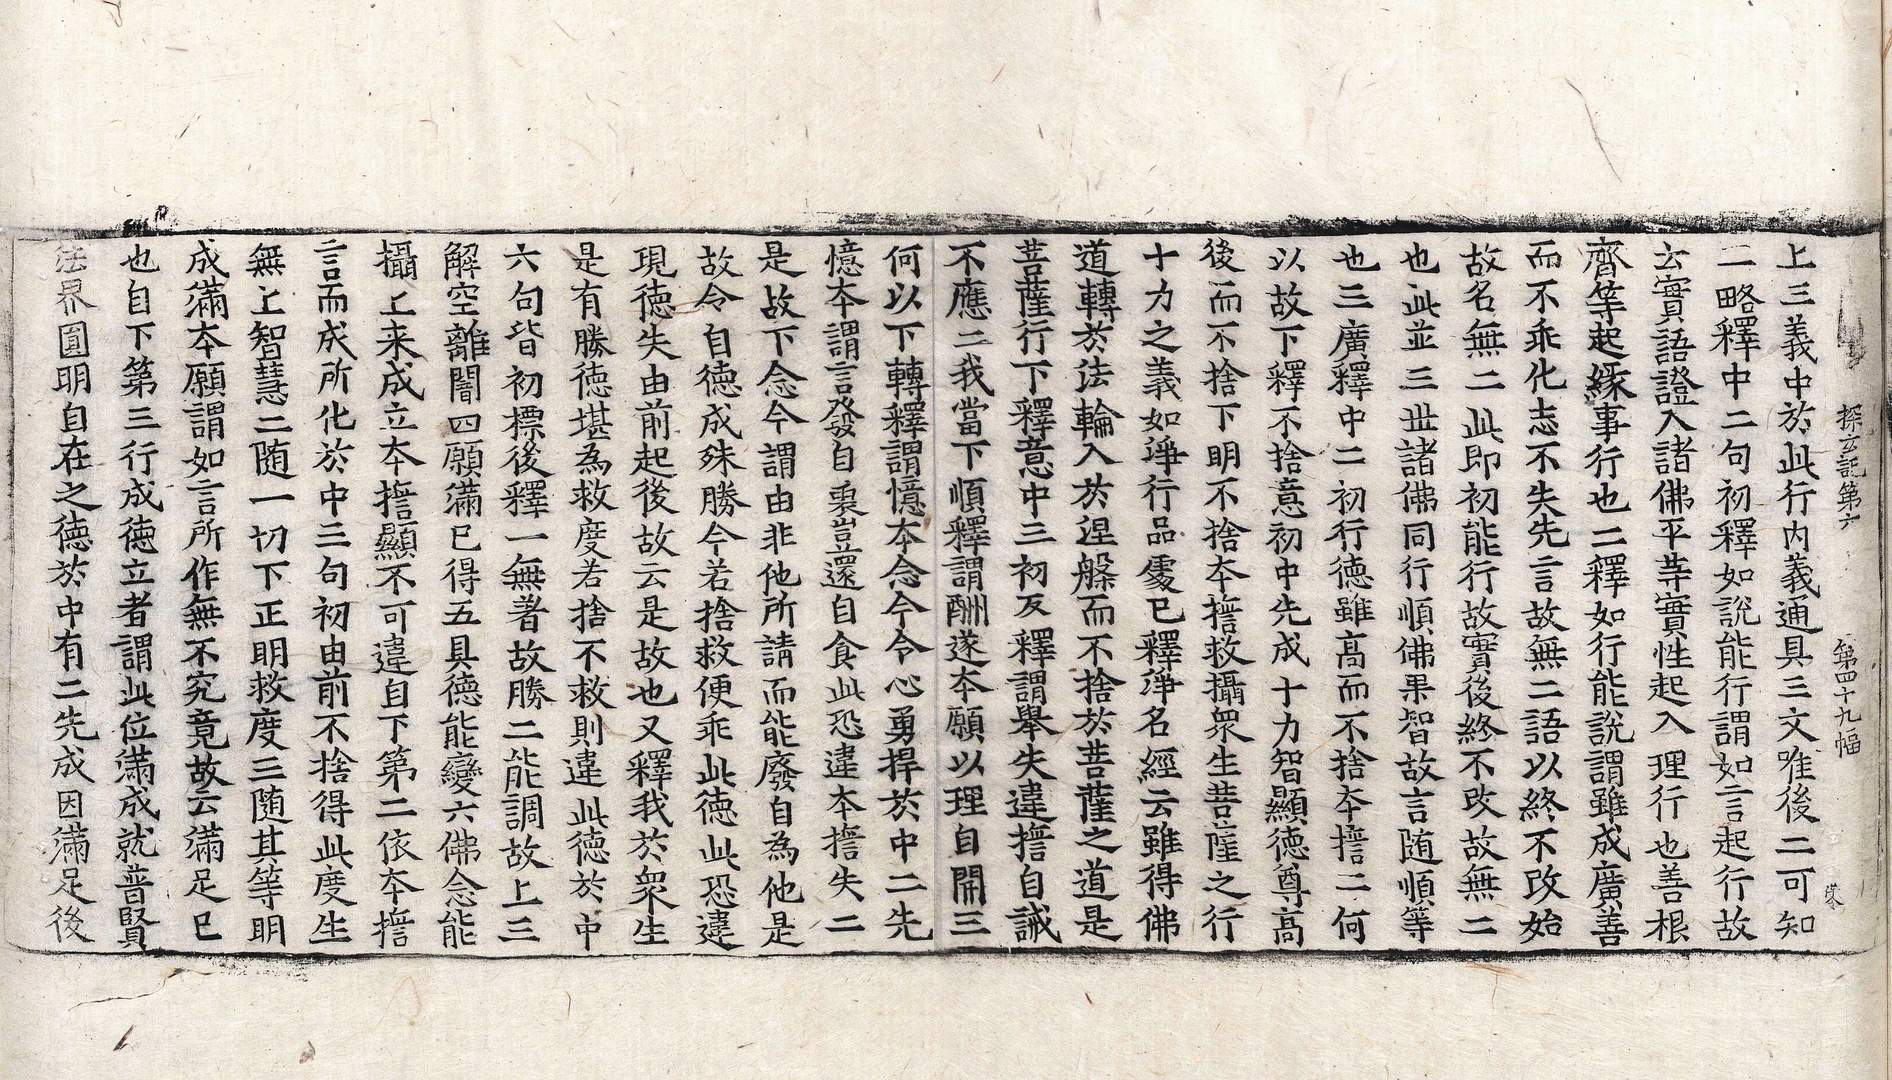 探玄記第六 第四十九幅
上三義中於此行内義通具三文唯後二可知
二略釋中二句初釋如說能行謂如言起行故
云實語證入諸佛平等實性起入理行也善根
齊等起緣事行也二釋如行能說謂雖成廣善
而不乖化志不失先言故無二語以終不改始
故名無二此即初能行故實後終不改故無二
也此並三世諸佛同行順佛果智故言随順等
也三廣釋中二初行德雖高而不捨本擔二何
以故下釋不捨意初中先成十力智顯德尊高
後而不捨下明不捨本擔救攝衆生菩薩之行
十力之義如淨行品處已釋淨名經云雖得佛
道轉於法輪入於涅槃而不捨於菩薩之道是
菩薩行下釋意中三初反釋謂舉失違擔自誡
不應二我當下順釋謂酬遂本願以理自開三
何以下轉釋謂憶本念今令心勇捍於中二先
憶本謂言發自裏豈還自食此恐違本擔失二
是故下念今謂由非他所請而能廢自為他是
故令自德成殊勝今若捨救便乖此德此恐違
現德失由前起後故云是故也又釋我於衆生
是有勝德堪為救度若捨不救則違此德於中
六句皆初標後釋一無著故勝二能調故上三
解空離闇四願滿已得五具德能變六佛念能
攝上来成立本擔顯不可違自下第二依本擔
言而成所化於中三句初由前不捨得此度生
無上智慧二随一切下正明救度三随其等明
成滿本願謂如言所作無不究竟故云滿足已
也自下第三行成德立者謂此位滿成就普賢
法界圓明自在之德於中有二先成因滿足後